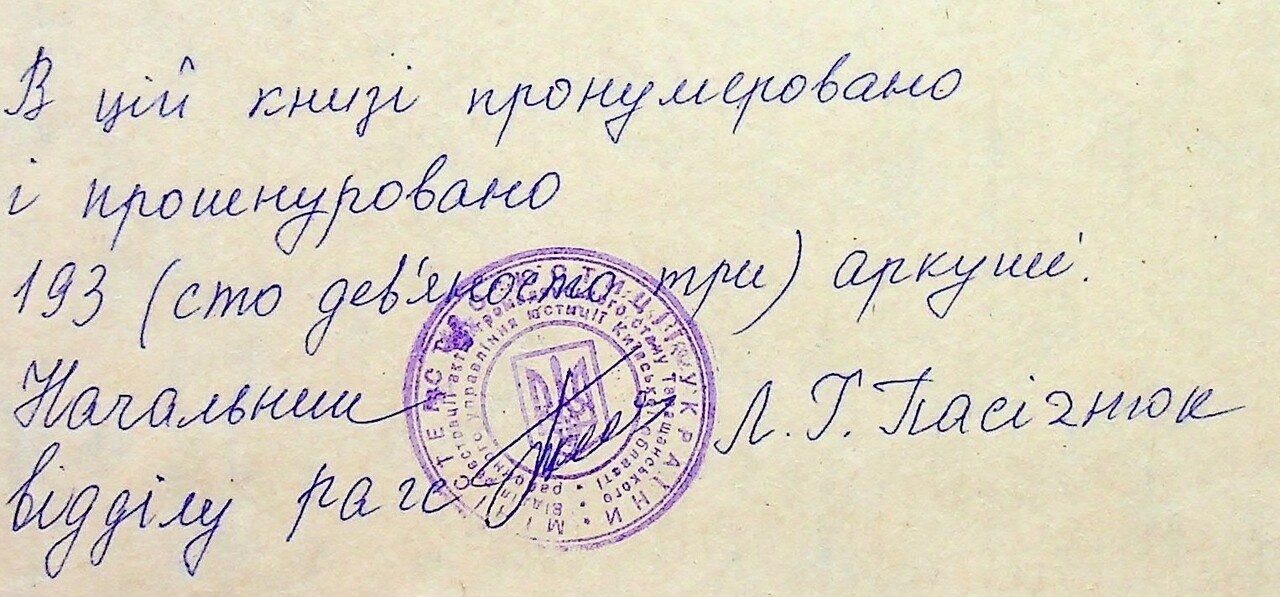 В цій книзі пронумеровано
і прошнуровано
193 (сто дев'яносто три) аркуші.
Начальник Л.Г. Пасічнюк
відділу рагс
МІНІСТЕРСТВО ЮСТИЦІЇ УКРАЇНИ
Відділ реєстрації актів громадянського стану Таращанського
районного управління юстиції Київської області